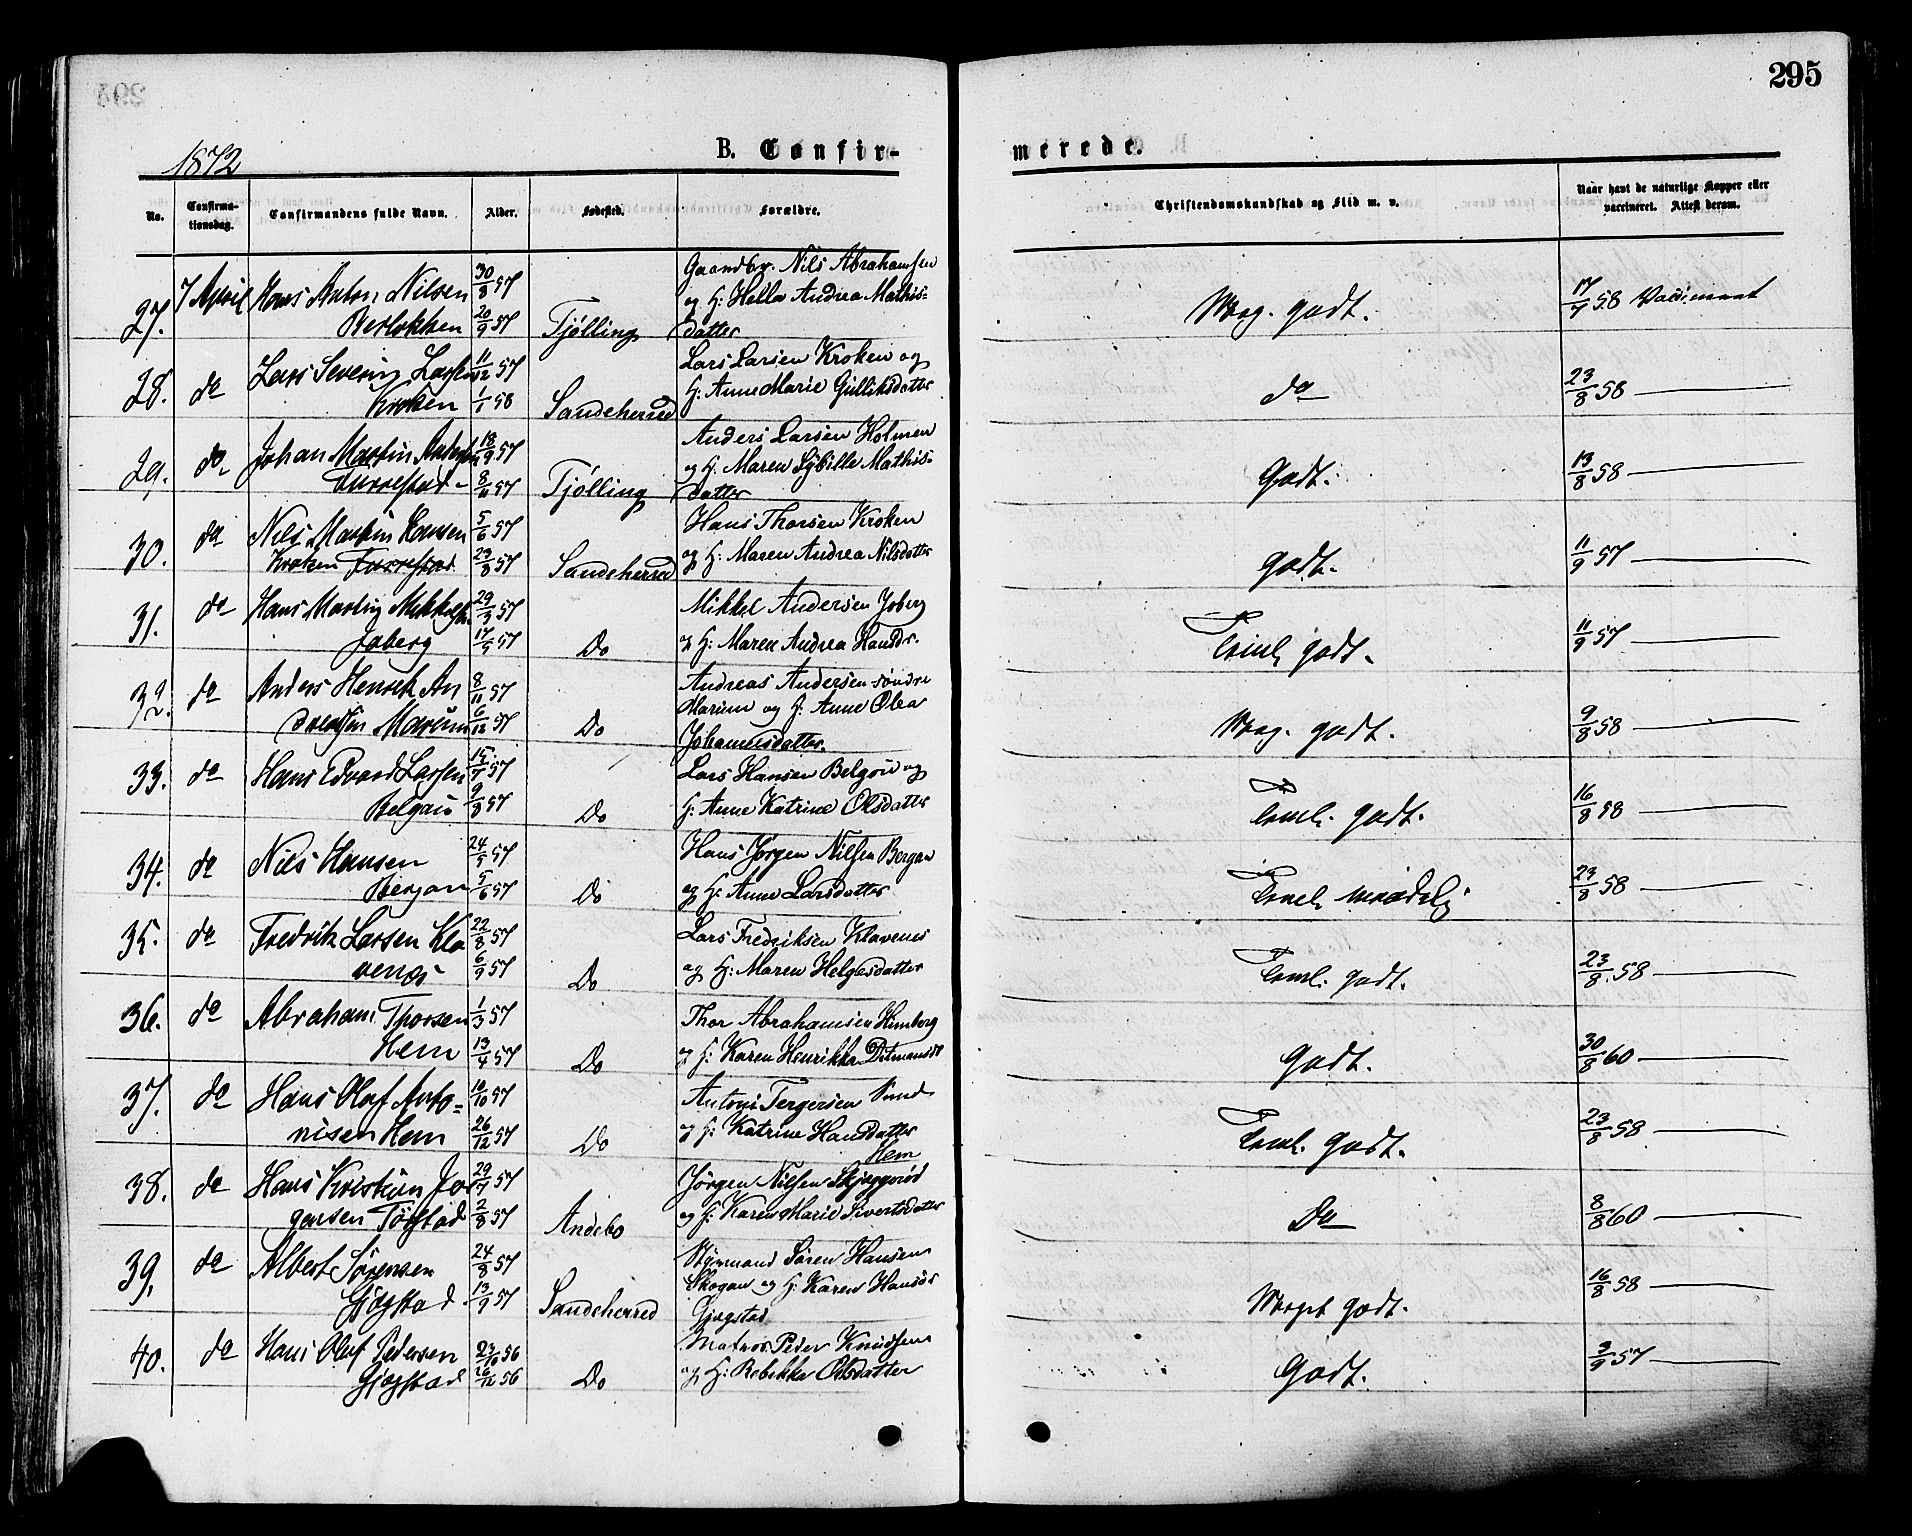 295
1872
B. Confir-
merede.
No.
Confirma-
tionsdag.
Confirmandens fulde Navn.
Alder.
Fødested.
Forældre.
Christendomskundskab og Flid m. v.
Naar havt de naturlige Kopper eller
vaccineret. Attest derom.
27. 7 April Hans Anton Nilsen 30/8 57 Gaardbr. Nils Abrahamsen
og H: Hella Andrea Mathis-
20/9 57 Tjølling datter
Meg. godt. 17/7 58
28. do Lars Severin Larsen 11/12 57 Lars Larsen Kroken og
Kroken 1/1 58 Sandeherred H: Anne Marie Gulliksdatter
do 23/8 58
29. do Johan Martin Anders 18/9 57 Anders Larsen Holmen
og H: Maren Sybille Mathis-
Furrestad 8/11 57 Tjølling datter
Godt. 13/8 58
30. do Nils Martin Hansen 5/6 57 Hans Thorsen Kroken
Kroken Furrestad 23/8 57 Sandeherred og H: Maren Andrea Nilsdatter
godt. 11/9 57
31. do Hans Martin Mikkels 29/3 57 Mikkel Andersen Joberg
Joberg 17/5 57 Do og H: Maren Andrea Hansdr.
Teml. godt. 11/9 57
32. do Anders Henrik An 8/11 57 Andreas Andersen søndre
dreassen Marum 6/12 57 Do Marum og H: Anne Olea
Johannesdatter.
Meg. godt. 9/8 58
33. do Hans Edvard Larsen 15/7 57 Lars Hansen Belgau og
Belgau 9/8 57 Do H: Anne Katrine Olsdatter
Teml. godt. 16/8 58
34. do Nils Hansen 24/5 57 Hans Jørgen Nilsen Bergan
Bergan 5/6 57 Do og H: Anne Larsdatter
Teml. 23/8 58
35. do Fredrik Larsen Kla 22/8 57 Lars Fredriksen Klavenes
venes 6/9 57 Do og H: Maren Helgesdatter
Teml. godt. 23/8 58
36. do Abraham Thorsen 1/3 57 Thor Abrahamsen Himberg
Hem 13/4 57 Do og H: Karen Henrikka Ditmansdt
godt. 30/8 60
37. do Hans Olaf Anto- 10/10 57 Antoni Tergersen Sund
nisen Hem 26/12 57 Do og H: Katrine Hansdatter
Hem
Teml. godt. 23/8 58
38. do Hans Kristian Jør 29/7 57 Jørgen Nilsen Skjeggerød
gensen Tøgstad 2/8 57 Andebo og H: Karen Marie Sivertsdatter
Do 8/8 60
39. do Albert Sørensen 24/8 57 Styrmand Søren Hansen
Skogan og H: Karen Hansdr
Gjogstad 13/9 57 Sandeherred Gjogstad
Meget godt. 16/8 58
40. do Hans Oluf Pedersen 23/10 56 Matros Peder Knudsen
Gjogstad 26/12 56 Do og H: Rebekka Olsdatter
Godt. 3/9 57